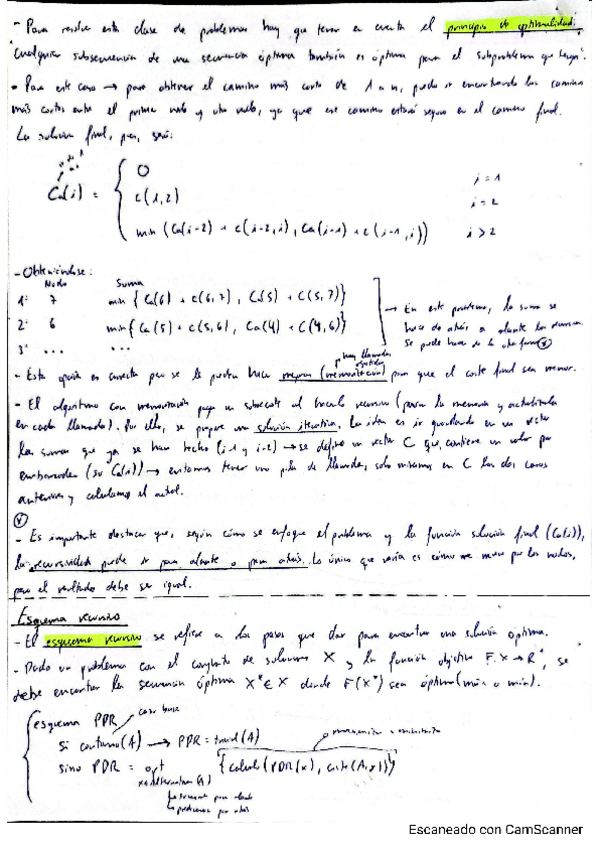 - Para resolver esta clase de problemas hay que tener en cuenta el principio de optimalidad:
cualquier subsecuencia de una secuencia óptima también es óptima para el subproblema que
- Para este caso → para obtener el camino más corto de 1 a n, puedo ir encontrando los caminos
más cortos entre el primer nodo y otro nodo, ya que ese camino estará seguro en el camino final.
La solución final, pues, será:
Ca(i) = { 0 i = 1
c(1,2) i = 2
min (Ca(i-2) + c(i-2,i), Ca(i-1) + c(i-1,i)) i > 2
- Obteniéndose:
Nodo Suma
1º 7 min {Ca(6) + c(6,7), C(5) + C(5,7)}
2º 6 min {Ca(5) + c(5,6), Ca(4) + C(4,6)}
3º ... ...
→ En este problema, la suma se
hace de atrás a alante
Se puede hacer de la otra forma
hay llamadas
repetidas
- Esta opción es correcta pero se le podría hacer mejoras (memorización) para que el coste final sea menor.
- El algoritmo con memorización paga un sobrecoste al hacerlo recursivo (parar la memoria y actualizarla
en cada llamada). Por ello, se propone una solución iterativa. La idea es ir guardando en un vector
las sumas que ya se han hecho (i-1 y i-2) → se define un vector C que contiene un valor por
embarcadero (su Ca(i)) → en vez de tener una pila de llamadas, solo miramos en C los dos casos
anteriores y calculamos el actual.
- Es importante destacar que, según cómo se enfoque el problema y la función solución final (Ca(i)),
la recursividad puede ir para alante o para atrás. Lo único que varía es cómo me muevo por los nodos,
pero el resultado debe ser igual.
Esquema recursivo
- El esquema recursivo se refiere a los pasos que dar para encontrar una solución óptima.
- Dado un problema con el conjunto de soluciones X y la función objetivo F: X → R, se
debe encontrar la secuencia óptima X* ∈ X donde F(X*) sea óptima (máx o mín).
esquema PDR caso base
si (A) → PDR = (A) maximiza o minimiza
sino PDR = opt {calcul(PDR(x), coste(A,x))}
x∈Alternativas(A)
para alante
para atrás
Escaneado con CamScanner